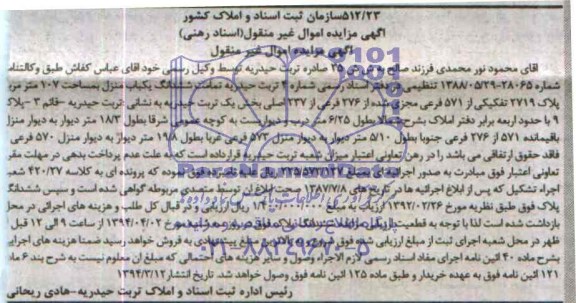 ۵۱۲/۲۳سازمان ثبت اسناد و املاک کشور
آگهی مزایده اموال غیر منقول(اسناد رهنی)
آگهی مزایده اموال غیر منقول
آقای محمود نور محمدی فرزند صالح به صادره تربت حیدریه توسط وکیل رسمی خود آقای عباس کفاش طبق وکالتنامه
شماره تنظیمی دفتر اسناد رسمی شماره تربت حیدریه تمامت ششدانگ یکباب منزل بمساحت ۱۰۷ متر مربع
پلاک ۲۷۱۹ تفکیکی از ۵۷۱ فرعی مجزی شده از ۲۷۶ فرعی از ۲۳۷ اصلی بخش یک تربت حیدریه به نشانی تربت حیدریه -قائم ۳ -پلاک
۹ با حدود اربعه برابر دفتر املاک بشرح شمالا بطول ۶/۲۵ متر درب و دیواریست به کوچه عمومی شرقا بطول ۱۸/۳ متر دیوار به دیوار منزل
باقیمانده ۵۷۱ از ۲۷۶ فرعی جنوبا بطول ۵/۱۰ متر دیوار به دیوار منزل ۵۷۳ فرعی غربا بطول ۱۹/۸ متر دیوار به دیوار منزل ۵۷۰ فرعی
فاقد حقوق ارتفاقی می باشد را در رهن تعاونی اعتبار میزان شعبه تربت حیدریه قرارداده است که به علت عدم پرداخت بدهی در مهلت مقرر
تعاونی اعتبار فوق مبادرت به صدور اجرائیه فوق نموده که پرونده ای به کلاسه ۴۲۰/۲۷ شعبه
اجرا، تشکیل که پس از ابلاغ اجرائیه ها در تاریخ های ۱۳۸۷/۷/۸ توسط متصدی مربوطه گواهی شده است و سپس ششدانگ
پلاک فوق طبق نظریه مورخ ۱۳۹۲/۰۲/۲۶ ریال ارزیابی و در قبال کل طلب و هزینه های اجرائی در محل
بازداشت شده است لذا با توجه به قطعیت ششدانگ پلاک فوق در روز مورخ ۱۳۹۴/۰۴/۰۲ از ساعت ۹ الی ۱۲ قبل از
ظهر در محل شعبه اجرای ثبت از مبلغ ارزیابی شده فوق شروع به پیشنهادی به فروش خواهد رسید ضمنا هزینه های اجرایی
بشرح ماده ۴۰ آئین نامه اجرای مفاد اسناد رسمی لازم الاجراء وصول و سایر هزینه های احتمالی که مبلغ آن معلوم نیست به شرح بند ۶ ماده
۱۲۱ آئین نامه فوق به عهده خریدار و طبق ماده ۱۲۵ آئین نامه فوق وصول خواهد شد. تاریخ انتشار:۱۳۹۴/۳/۱۲
رئیس اداره ثبت اسناد و املاک تربت حیدریه-هادی ریحانی